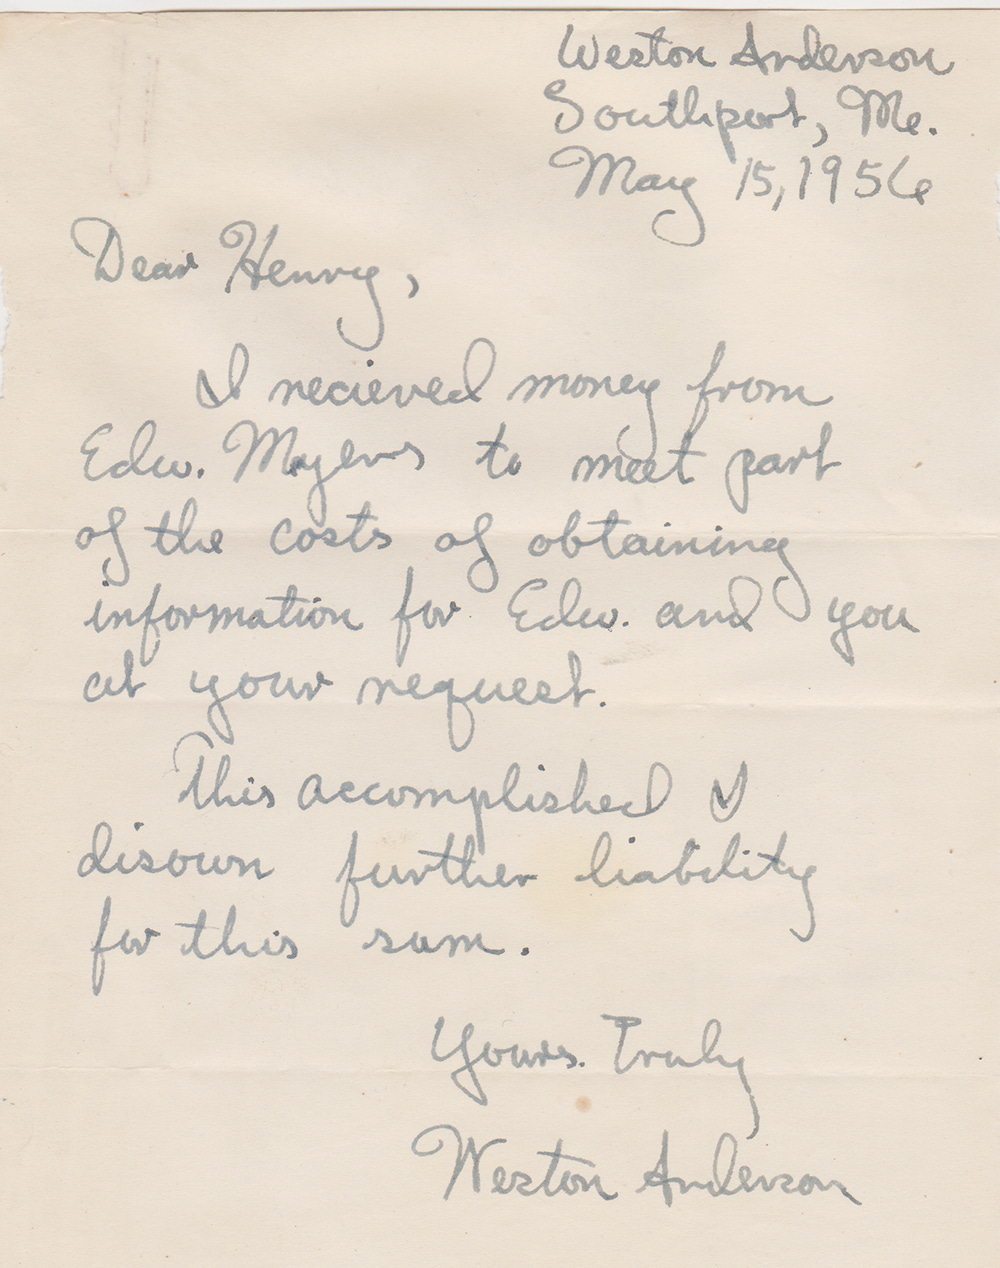 Weston Anderson
Southport, Me.
May 15, 1956
Dear Henry,
I recieved money from
Edw. Myers to meet part
of the costs of obtaining
information for Edw. and you
at your request.
This accomplished I
disown further liability
for this sum.
Yours Truly
Weston Anderson